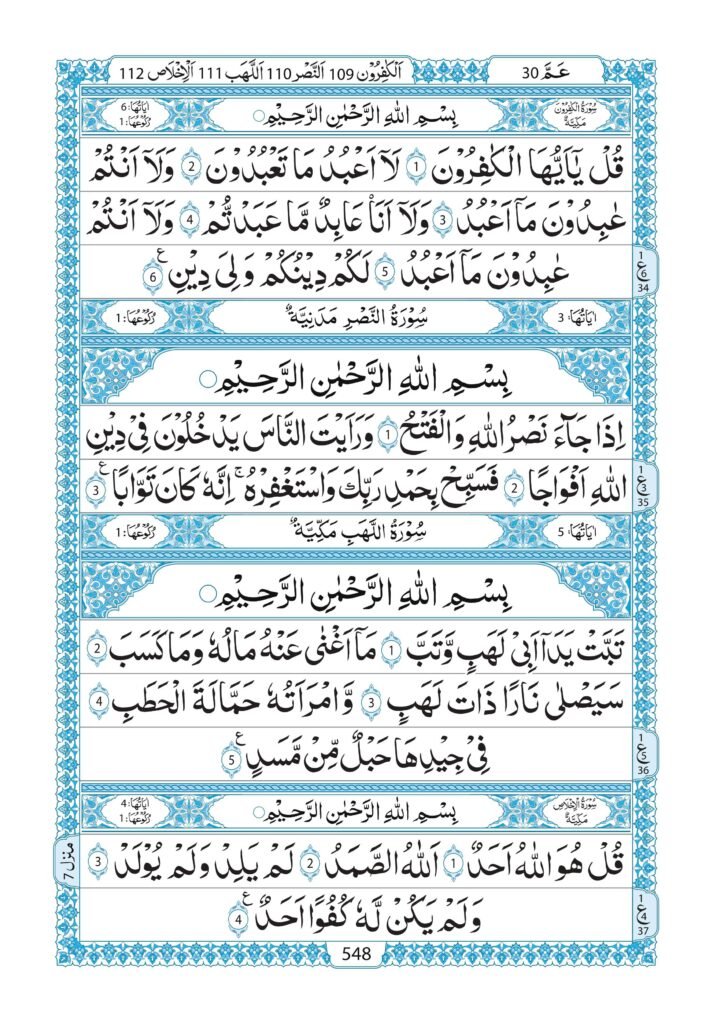 عَمَّ 30
اَلْكٰفِرُوْن 109 اَلنَّصْر 110 اَللَّهَب 111 اَلْاِخْلَاص 112
سُوْرَةُ الْكٰفِرُوْنَ مَكِّيَّةٌ
بِسْمِ اللهِ الرَّحْمٰنِ الرَّحِيْمِ
اٰيَاتُهَا: 6
رُكُوْعُهَا: 1
قُلْ يٰۤاَيُّهَا الْكٰفِرُوْنَ 1 لَاۤ اَعْبُدُ مَا تَعْبُدُوْنَ 2 وَلَاۤ اَنْتُمْ
عٰبِدُوْنَ مَاۤ اَعْبُدُ 3 وَلَاۤ اَنَا۠ عَابِدٌ مَّا عَبَدْتُّمْ 4 وَلَاۤ اَنْتُمْ
عٰبِدُوْنَ مَاۤ اَعْبُدُ 5 لَكُمْ دِيْنُكُمْ وَلِيَ دِيْنِ 6 ع
1
ع
6
34
اٰيَاتُهَا: 3
سُوْرَةُ النَّصْرِ مَدَنِيَّةٌ
رُكُوْعُهَا: 1
بِسْمِ اللهِ الرَّحْمٰنِ الرَّحِيْمِ
اِذَا جَآءَ نَصْرُ اللهِ وَالْفَتْحُ 1 وَرَاَيْتَ النَّاسَ يَدْخُلُوْنَ فِيْ دِيْنِ
اللهِ اَفْوَاجًا 2 فَسَبِّحْ بِحَمْدِ رَبِّكَ وَاسْتَغْفِرْهُ ۚ اِنَّهٗ كَانَ تَوَّابًا 3 ع
1
ع
3
35
اٰيَاتُهَا: 5
سُوْرَةُ اللَّهَبِ مَكِّيَّةٌ
رُكُوْعُهَا: 1
بِسْمِ اللهِ الرَّحْمٰنِ الرَّحِيْمِ
تَبَّتْ يَدَاۤ اَبِيْ لَهَبٍ وَّتَبَّ 1 مَاۤ اَغْنٰى عَنْهُ مَالُهٗ وَمَا كَسَبَ 2
سَيَصْلٰى نَارًا ذَاتَ لَهَبٍ 3 وَّامْرَاَتُهٗ حَمَّالَةَ الْحَطَبِ 4
فِيْ جِيْدِهَا حَبْلٌ مِّنْ مَّسَدٍ 5 ع
1
ع
5
36
سُوْرَةُ الْاِخْلَاصِ مَكِّيَّةٌ
بِسْمِ اللهِ الرَّحْمٰنِ الرَّحِيْمِ
اٰيَاتُهَا: 4
رُكُوْعُهَا: 1
قُلْ هُوَ اللهُ اَحَدٌ 1 اَللهُ الصَّمَدُ 2 لَمْ يَلِدْ وَلَمْ يُوْلَدْ 3
منزل 7
وَلَمْ يَكُنْ لَّهٗ كُفُوًا اَحَدٌ 4 ع
1
ع
4
37
548